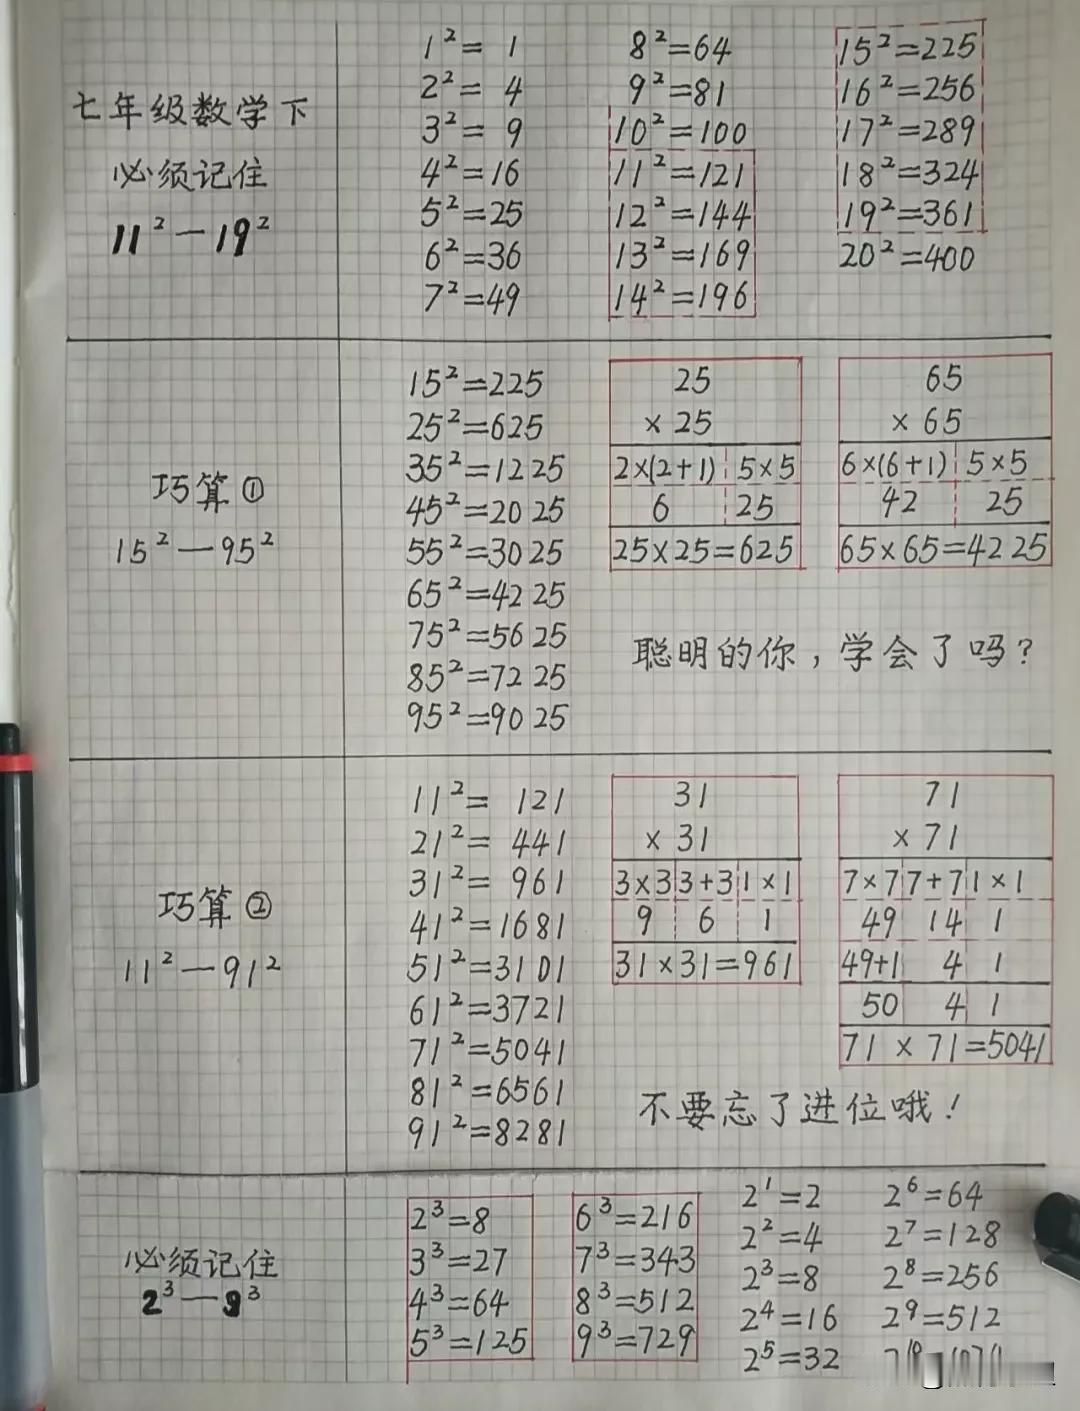 七年级数学下
必须记住
11²—19²
1²= 1
2²= 4
3²= 9
4²=16
5²=25
6²=36
7²=49
8²=64
9²=81
10²=100
11²=121
12²=144
13²=169
14²=196
15²=225
16²=256
17²=289
18²=324
19²=361
20²=400
巧算①
15²—95²
15²=225
25²=625
35²=12 25
45²=20 25
55²=30 25
65²=42 25
75²=56 25
85²=72 25
95²=90 25
25
× 25
2×(2+1) 5×5
6 25
25×25=625
65
× 65
6×(6+1) 5×5
42 25
65×65=42 25
聪明的你,学会了吗?
巧算②
11²—91²
11²= 121
21²= 441
31²= 961
41²=1681
51²=3101
61²=3721
71²=5041
81²=6561
91²=8281
31
× 31
3×3 3+3 1×1
9 6 1
31×31=961
71
× 71
7×7 7+7 1×1
49 14 1
49+1 4 1
50 4 1
71 × 71=5041
不要忘了进位哦!
必须记住
2³—9³
2³=8
3³=27
4³=64
5³=125
6³=216
7³=343
8³=512
9³=729
2¹=2
2²=4
2³=8
2⁴=16
2⁵=32
2⁶=64
2⁷=128
2⁸=256
2⁹=512